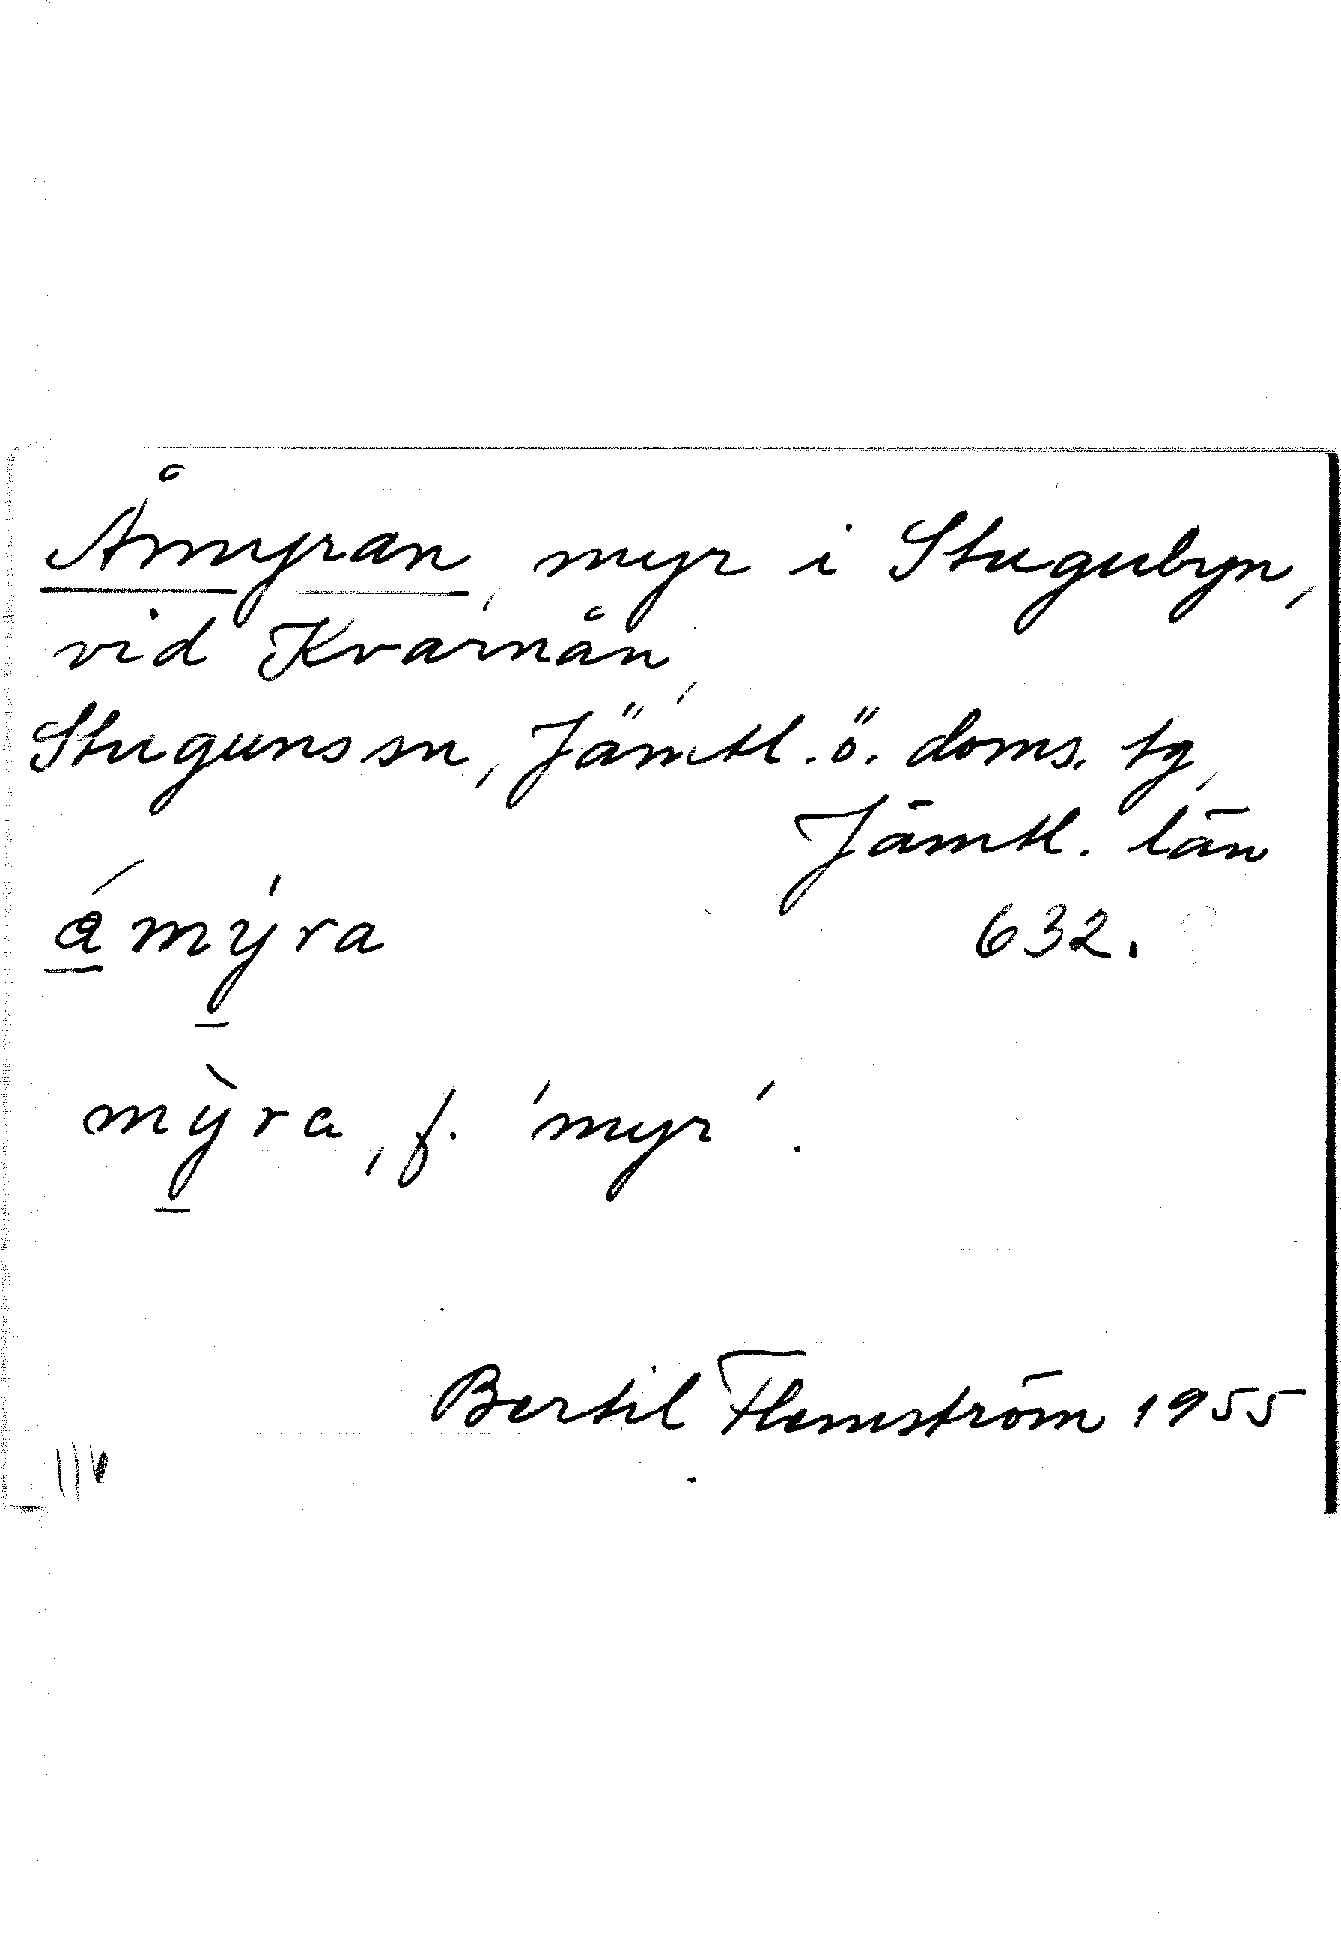 Åmyran, myr i Stugubyn,
vid Kvarnån,
Stuguns sn, Jämtl. ö. doms. tg,
Jämtl. län
ǻmýra 632.
mỳra, f. 'myr'.
Bertil Flemström 1955